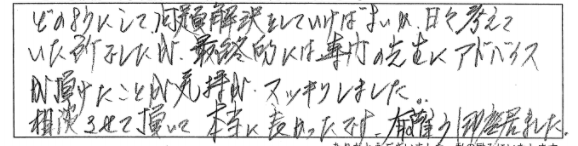 どのようにして問題解決をしていけばよいか、日々考えて
いた所でしたが、最終的には専門の先生にアドバイス
が頂けたことが気持が、スッキリしました。
相談させて頂いて本当に良かったです。有難う御座居ました。